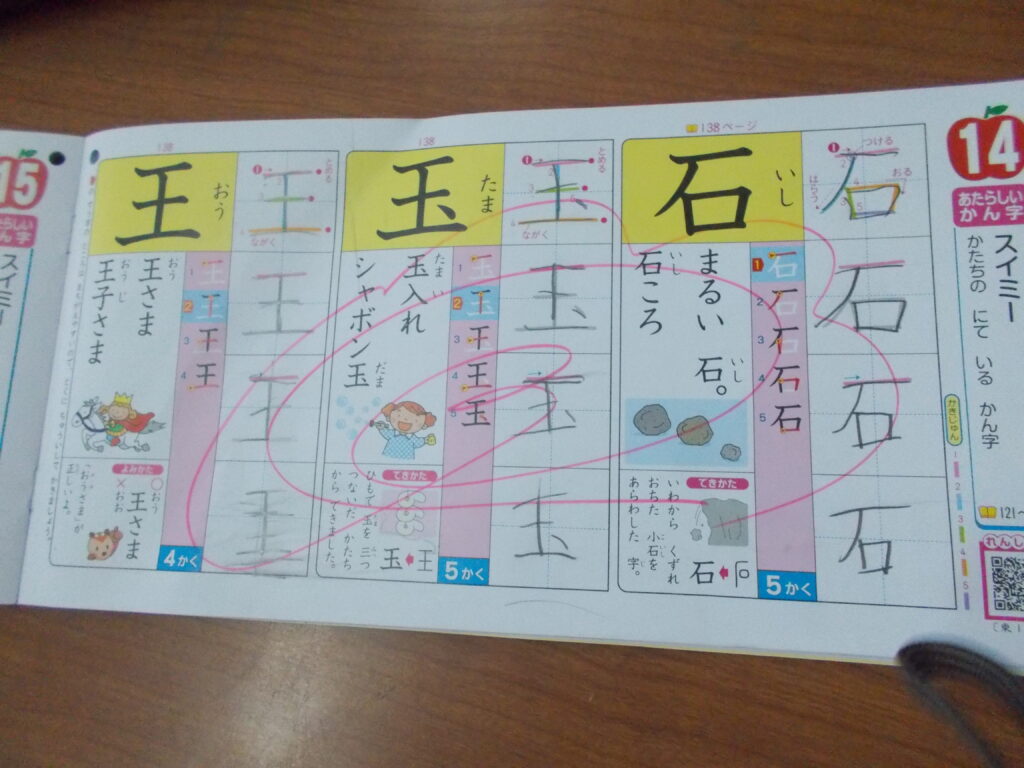 14
あたらしい
かん字
スイミー
かたちの にて いる かん字
121~
かきじゅん
1
2
3
4
5
138ページ
石
いし
つける
おる
はらう
まるい 石。
いし
石ころ
いし
1 石
2 石
3 石
4 石
5 石
5かく
できかた
いわから くずれ
おちた 小石を
あらわした 字。
石
石
石
石
石
138
玉
たま
とめる
ながく
玉入れ
たま い
シャボン玉
だま
1 玉
2 玉
3 干
4 王
5 玉
5かく
できかた
ひもで 玉を 三つ
つないだ かたち
から できました。
玉
王
玉
玉
玉
玉
138
王
おう
とめる
ながく
王さま
おう
王子さま
おう じ
1 王
2 王
3 干
4 王
4かく
よみかた
○おう
×おお
王さま
「おうさま」が
正しいよ。
王
王
王
王
15
スイミー